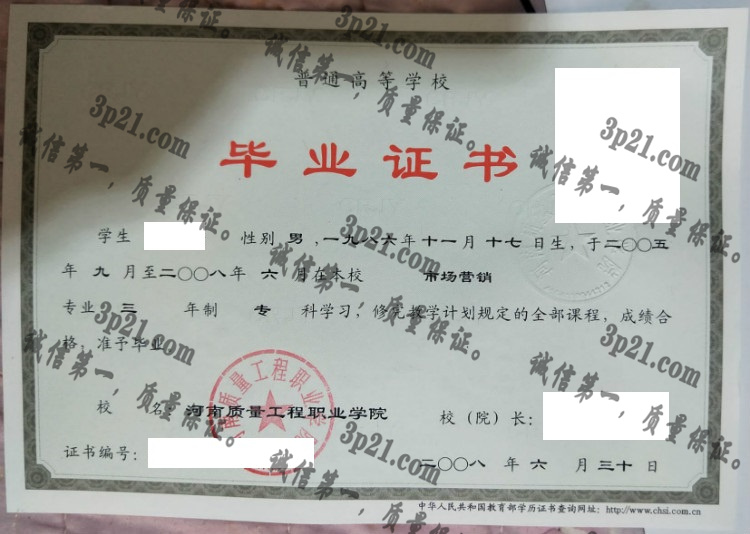 普通高等学校
毕业证书
学生 性别 男 ,一九八六年十一月十七日生,于二〇〇五
年九月至二〇〇八年六月在本校 市场营销
专业 三 年制 专 科学习,修完教学计划规定的全部课程,成绩合
格,准予毕业。
校名 河南质量工程职业学院
校(院)长:
证书编号:
二〇〇八年六月三十日
中华人民共和国教育部学历证书查询网址:http://www.chsi.com.cn
河南质量工程职业学院
3p21.com
诚信第一,质量保证。
3p21.com
诚信第一,质量保证。
3p21.com
诚信第一,质量保证。
3p21.com
诚信第一,质量保证。
3p21.com
诚信第一,质量保证。
3p21.com
诚信第一,质量保证。
3p21.com
诚信第一,质量保证。